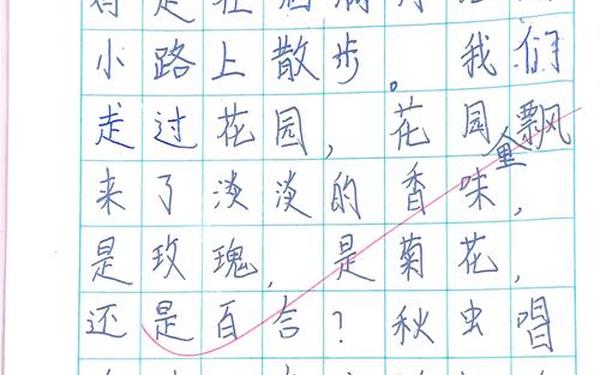 小路上散步。我们
走过花园，花园里飘
来了淡淡的香味，
是玫瑰，是菊花，
还是百合？秋虫唱